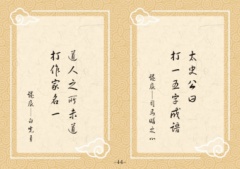 太史公曰
打一五字成語
謎底——司馬昭之心
道人之所未道
打作家名一
謎底——白
-44-